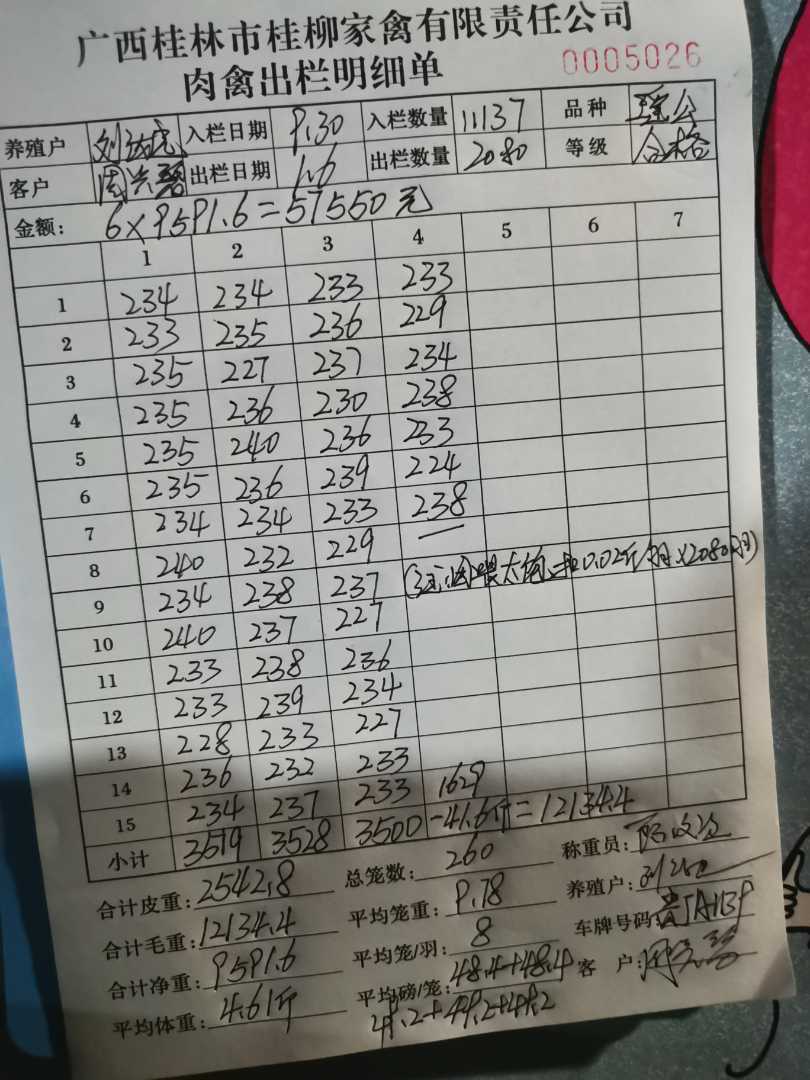 广西桂林市桂柳家禽有限责任公司
肉禽出栏明细单 0005026
养殖户 入栏日期 9.30 入栏数量 11137 品种
客户 周兴 出栏日期 1.6 出栏数量 2080 等级 合格
金额: 6×9591.6=57550元
1 2 3 4 5 6 7
1 234 234 233 233
2 233 235 236 229
3 235 227 237 234
4 235 236 230 238
5 235 240 236 233
6 235 236 239 224
7 234 234 233 238
8 240 232 229 —
9 234 238 237 0.02斤/羽×2080羽)
10 240 237 227
11 233 238 236
12 233 239 234
13 228 233 227
14 236 232 233
15 234 237 233 1629
小计 3519 3528 3500 -41.6斤=12134.4
合计皮重: 2542.8 总笼数: 260 称重员:
合计毛重: 12134.4 平均笼重: 9.78 养殖户:
合计净重: 9591.6 平均笼/羽: 8 车牌号码:
平均体重: 4.61斤 平均磅/笼: 48.4+48.4 客户:
49.2+49.2+49.2